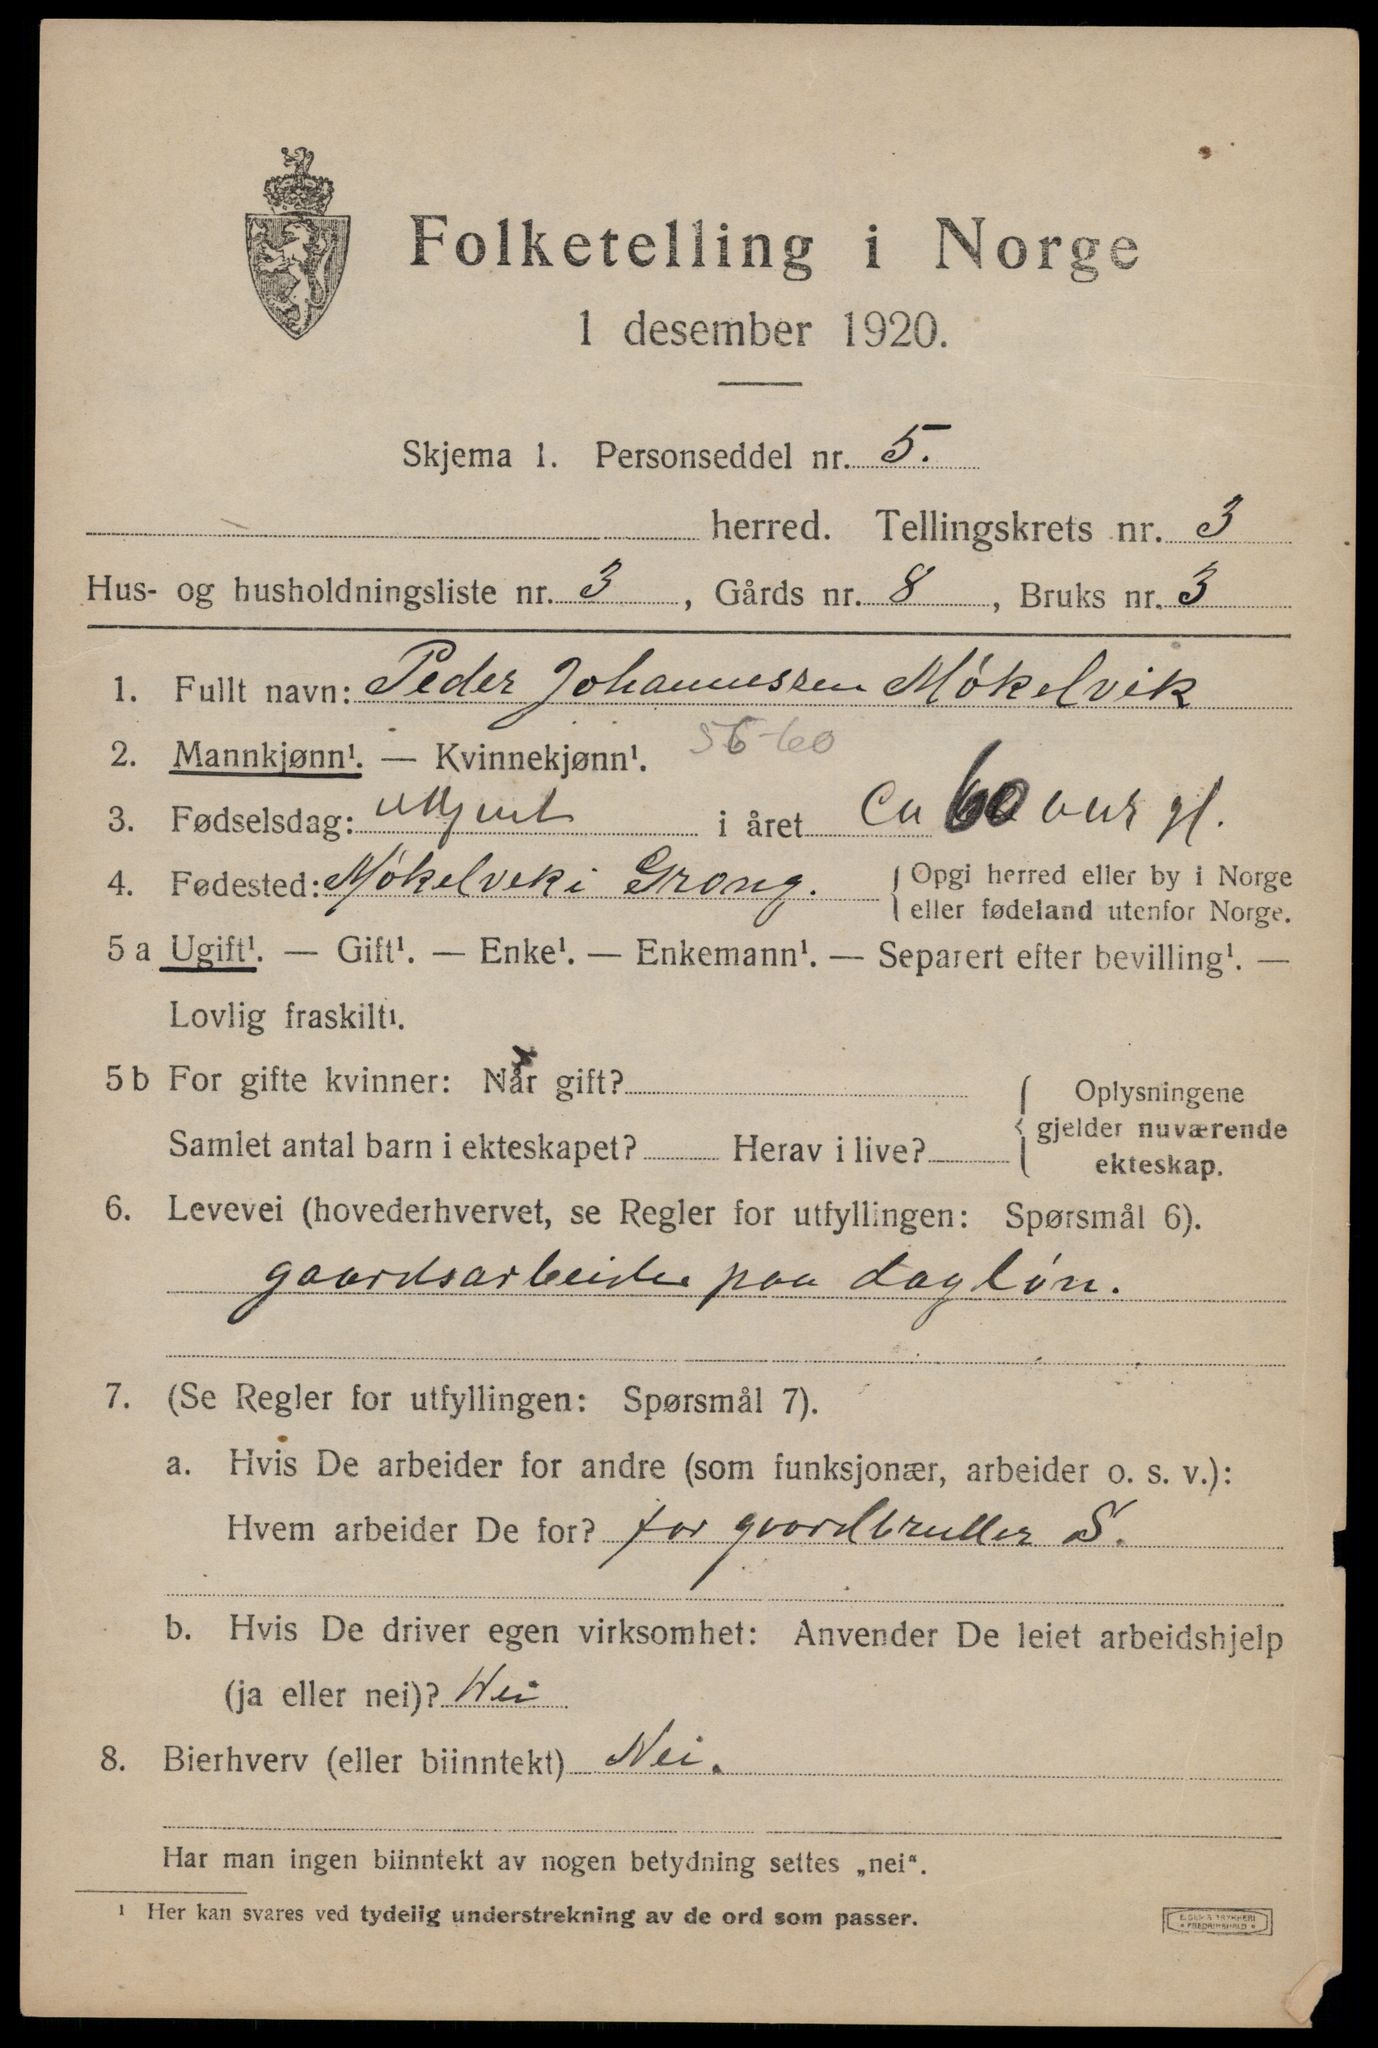 Folketelling i Norge
1 desember 1920.
Skjema 1. Personseddel nr. 5.
herred. Tellingskrets nr. 3
Hus- og husholdningsliste nr. 3, Gårds nr. 8, Bruks nr. 3
1. Fullt navn: Peder Johannessen Møkelvik
2. Mannkjønn¹. — Kvinnekjønn¹. 56-60
3. Fødselsdag: i året Ca 60 aar gl.
4. Fødested: Møkelvek i Grong. Opgi herred eller by i Norge
eller fødeland utenfor Norge.
5 a Ugift¹. — Gift¹. — Enke¹. — Enkemann¹. — Separert efter bevilling¹. —
Lovlig fraskilt¹.
5 b For gifte kvinner: Når gift? Oplysningene
gjelder nuværende
Samlet antal barn i ekteskapet? Herav i live?
ekteskap.
6. Levevei (hovederhvervet, se Regler for utfyllingen: Spørsmål 6).
gaardsarbeider paa dagløn.
7. (Se Regler for utfyllingen: Spørsmål 7).
a. Hvis De arbeider for andre (som funksjonær, arbeider o. s. v.):
Hvem arbeider De for? for gaardbruker S.
b. Hvis De driver egen virksomhet: Anvender De leiet arbeidshjelp
(ja eller nei)? Nei
8. Bierhverv (eller biinntekt) Nei.
Har man ingen biinntekt av nogen betydning settes „nei“.
¹ Her kan svares ved tydelig understrekning av de ord som passer.